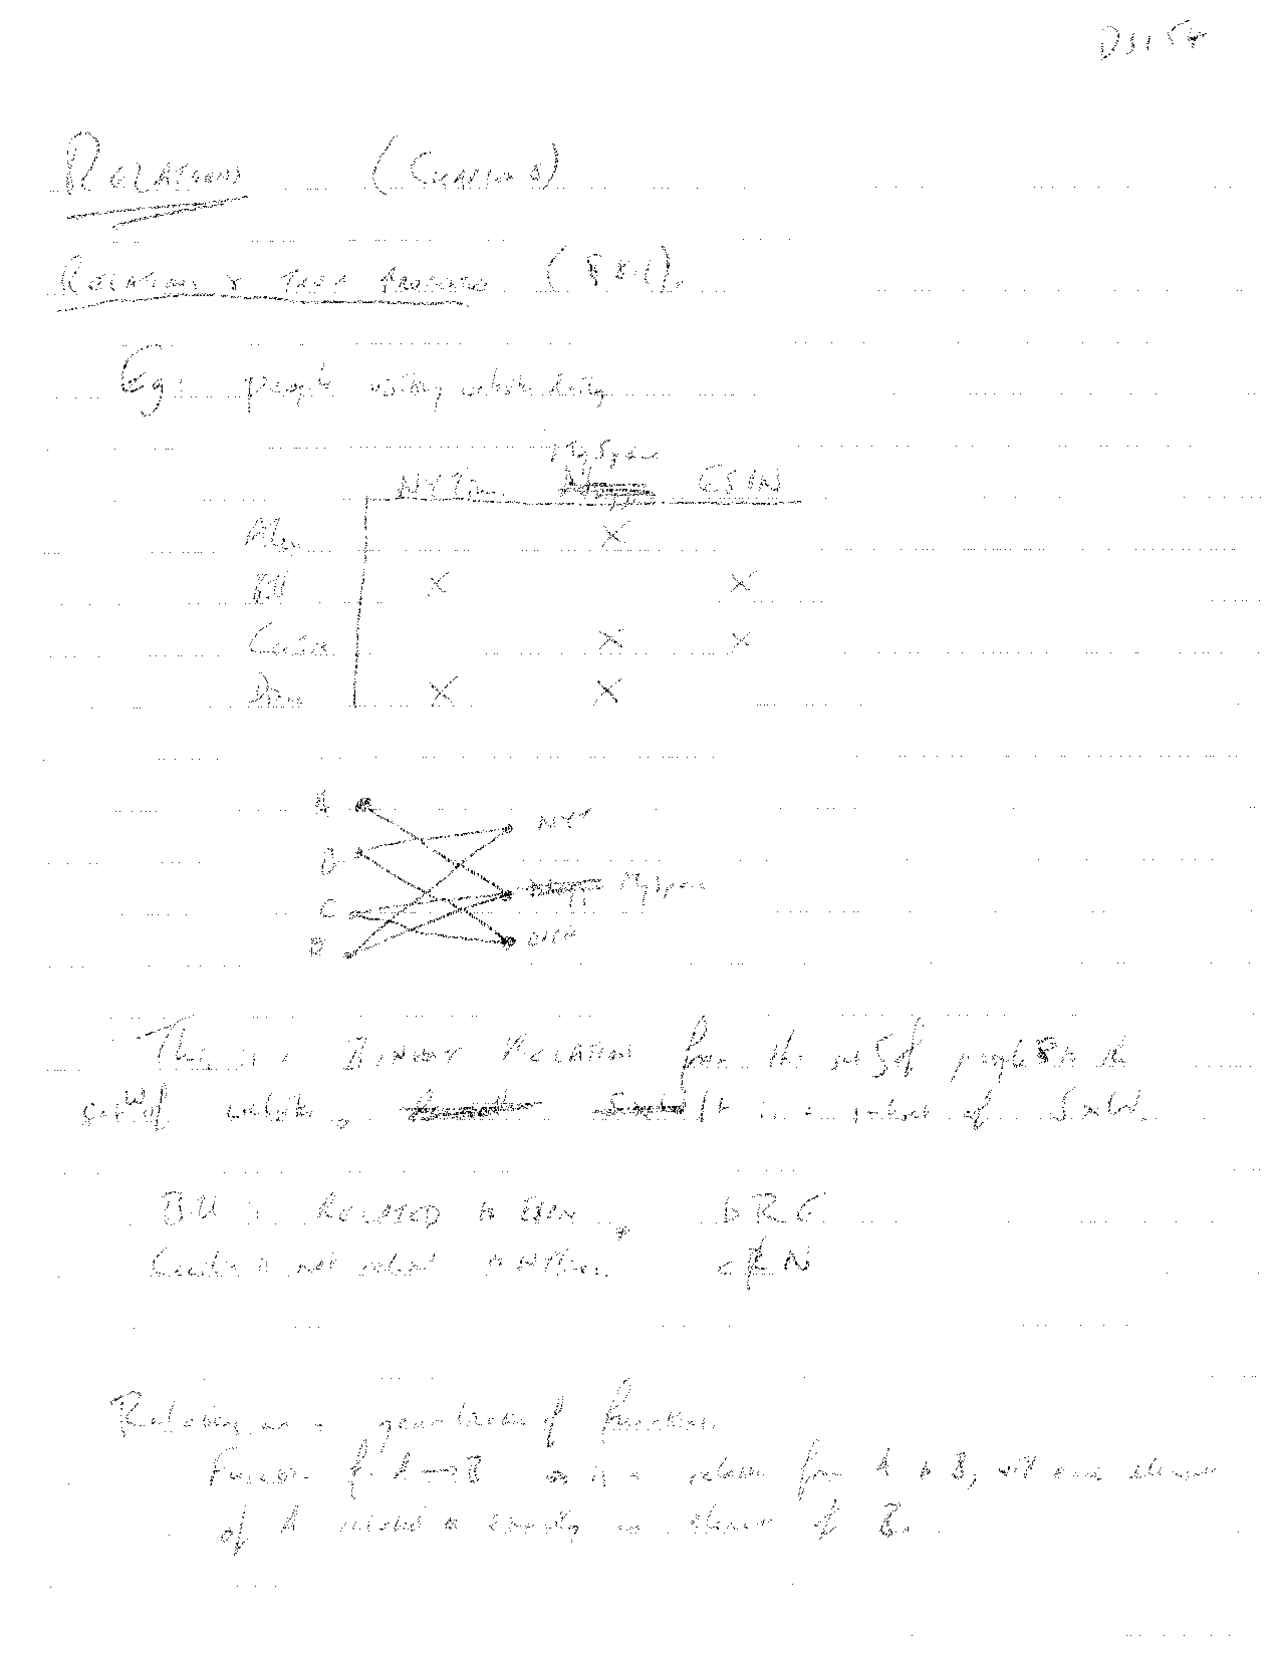 RELATIONS (CHAPTER 8)
RELATIONS & THEIR PROPERTIES (§ 8.1).
Eg: people visiting website
MySpace
NYTimes ESPN
Alex X
Bill X X
Cecilia X X
X X
A NYT
B
C MySpace
D ESPN
This is a BINARY RELATION from the set S of people to the
set W of websites, It is a subset of SxW.
Bill is RELATED to ESPN, b R E
Cecilia is not related to NYTimes. c R̸ N
Relations are a generalization of functions.
Function f: A → B is a relation from A to B, with each element
of A related to exactly one element of B.